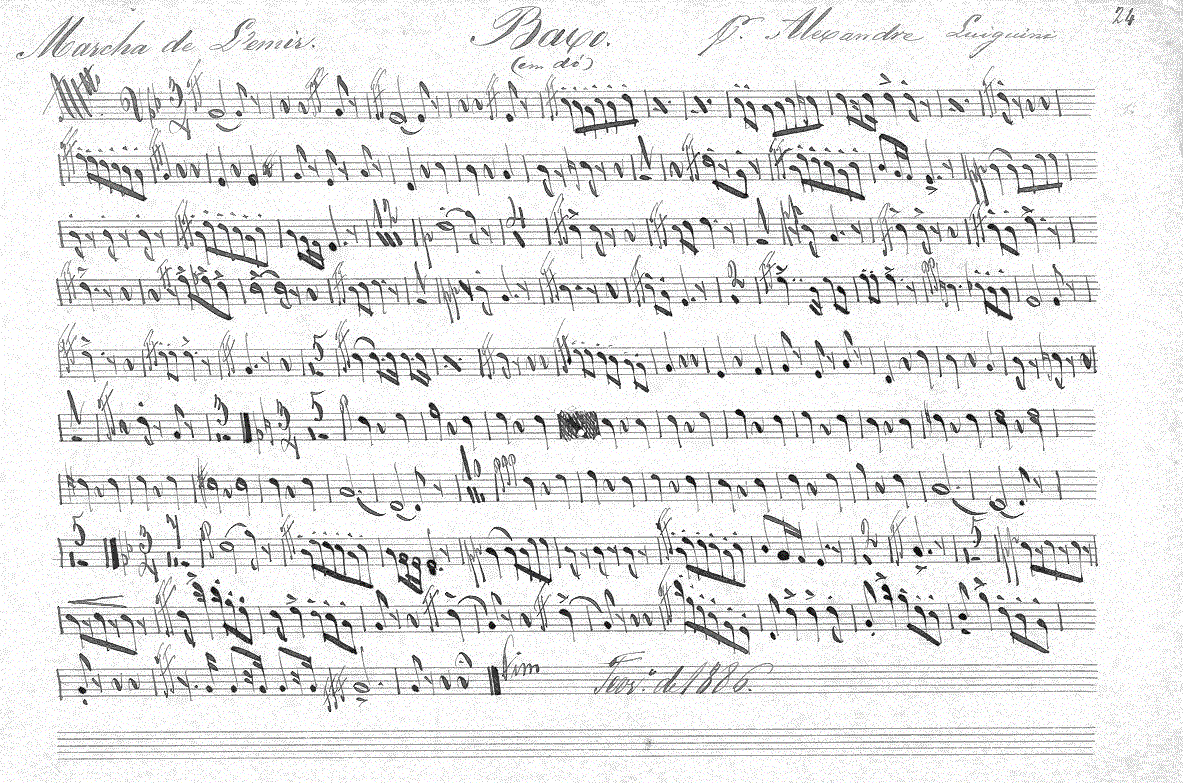 Marcha de L'emir. Baixo. C. Alexandre Luiguini 24
(em dó)
Fim Fevr.º de 1886.